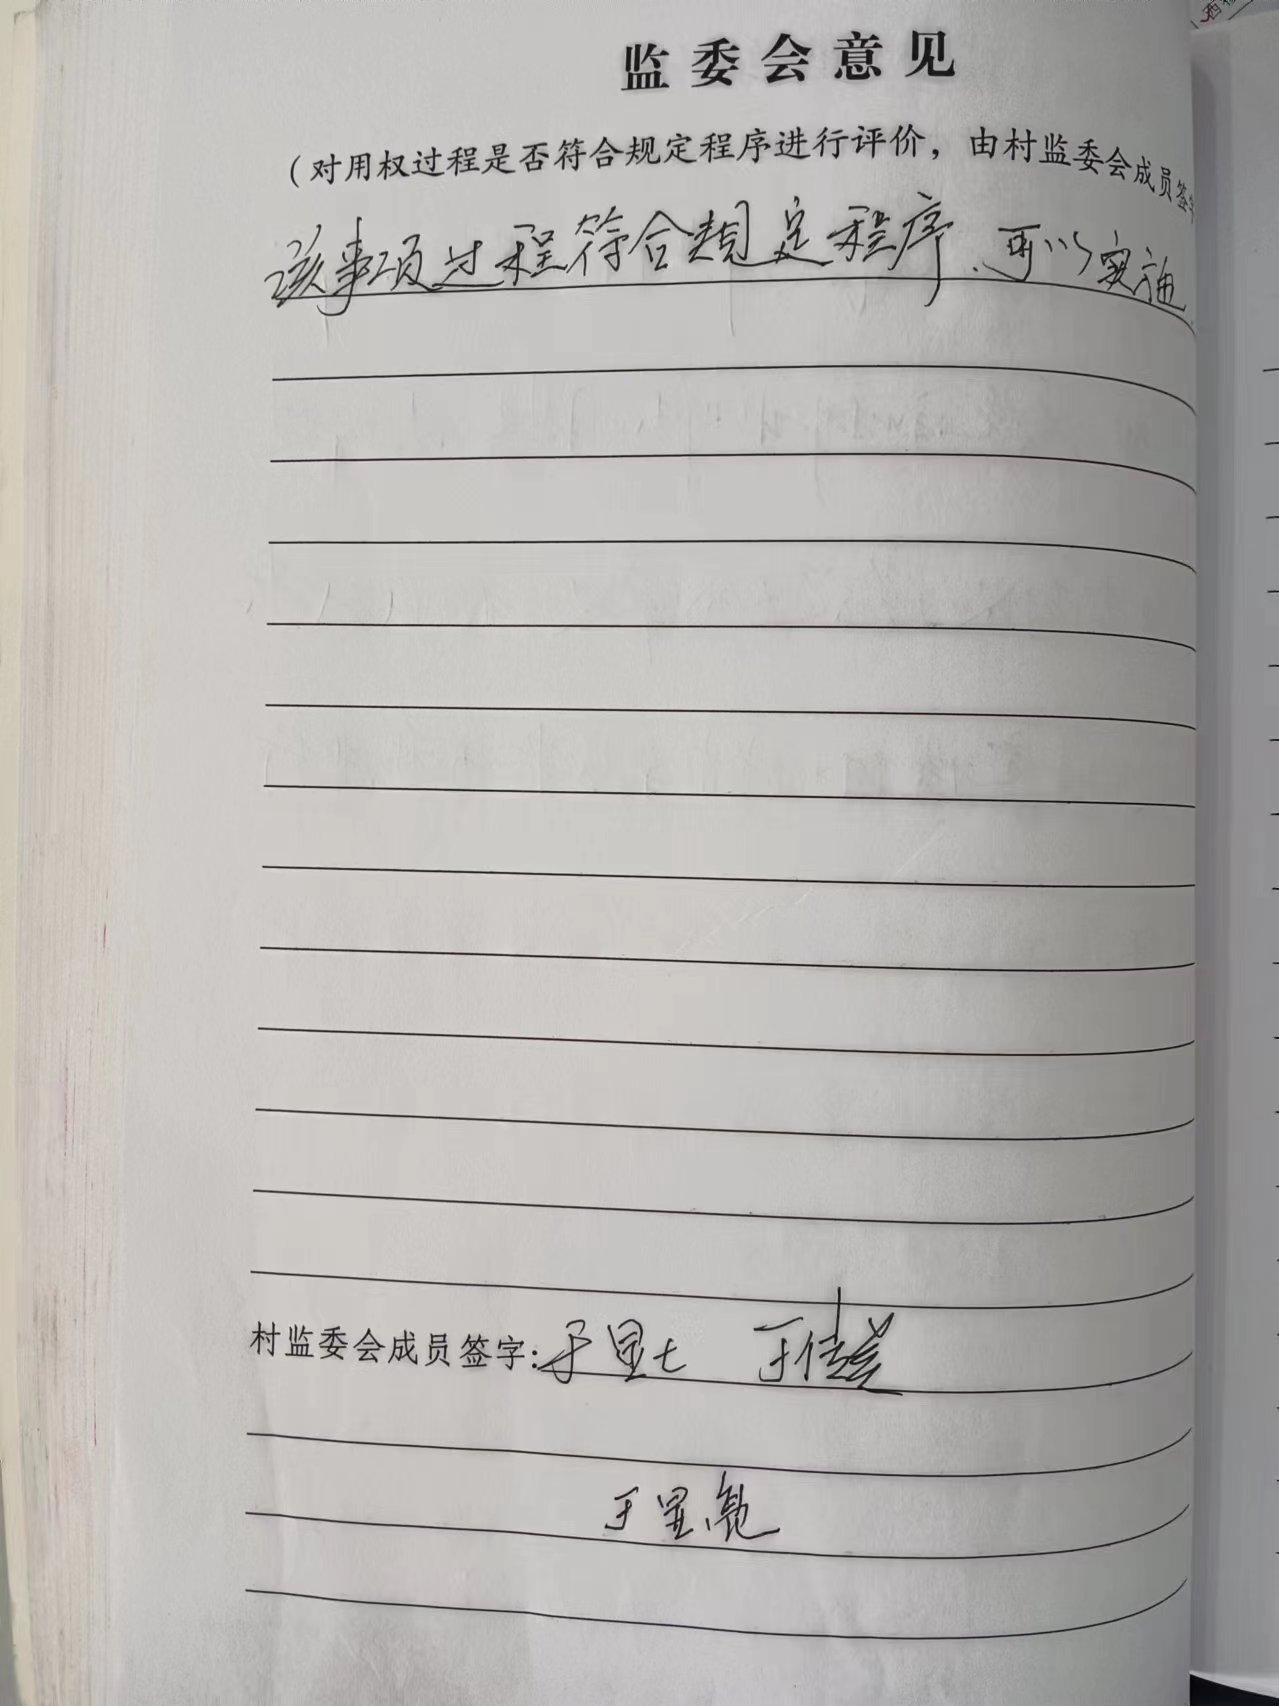 监委会意见
（对用权过程是否符合规定程序进行评价，由村监委会成员签字
该事项过程符合规定程序.可以实施
村监委会成员签字：于显七 于佳
于显亮
西